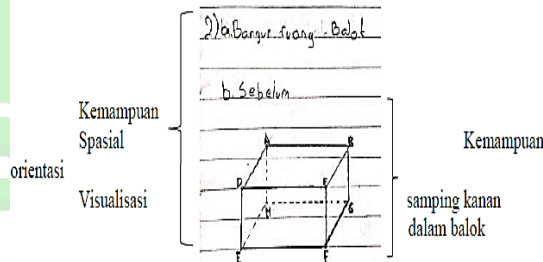 2) a. Bangun ruang : Balok
b. Sebelum
Kemampuan
Spasial
orientasi
Visualisasi
Kemampuan
samping kanan
dalam balok
A B
D F
H G
E F